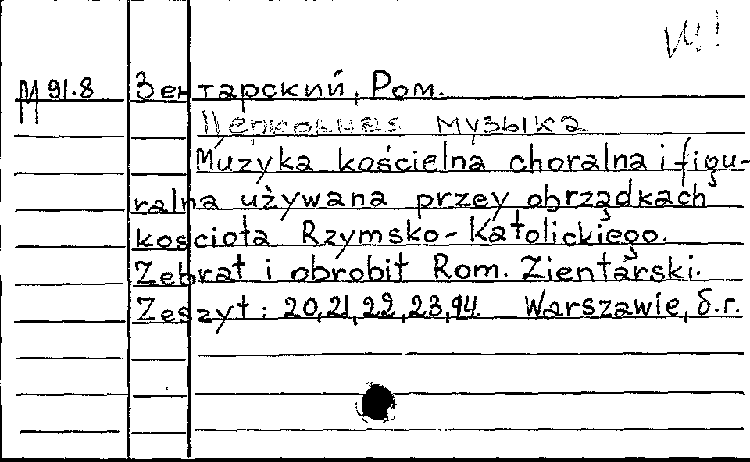 М 91.8 Зентарский, Ром.
Церковная музыка
Muzyka kościelna choralna i figu-
ralna używana przey obrządkach
kościoła Rzymsko-Katolickiego.
Zebrał i obrobił Rom. Zientarski.
Zeszyt: 20,21,22,23,94. Warszawie, б.г.